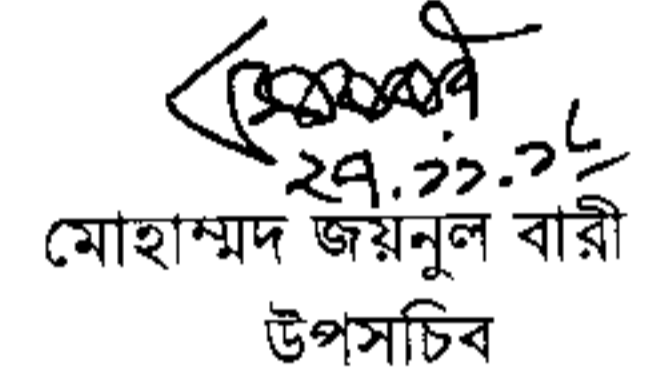 ২৭.১১.১৮
মোহাম্মদ জয়নুল বারী
উপসচিব